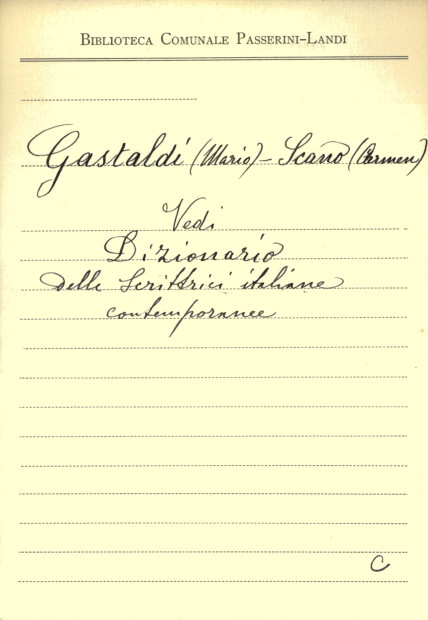 BIBLIOTECA COMUNALE PASSERINI-LANDI
Gastaldi (Mario) - Scano (Carmen)
Vedi
Dizionario
delle Scrittrici italiane
contemporanee
C